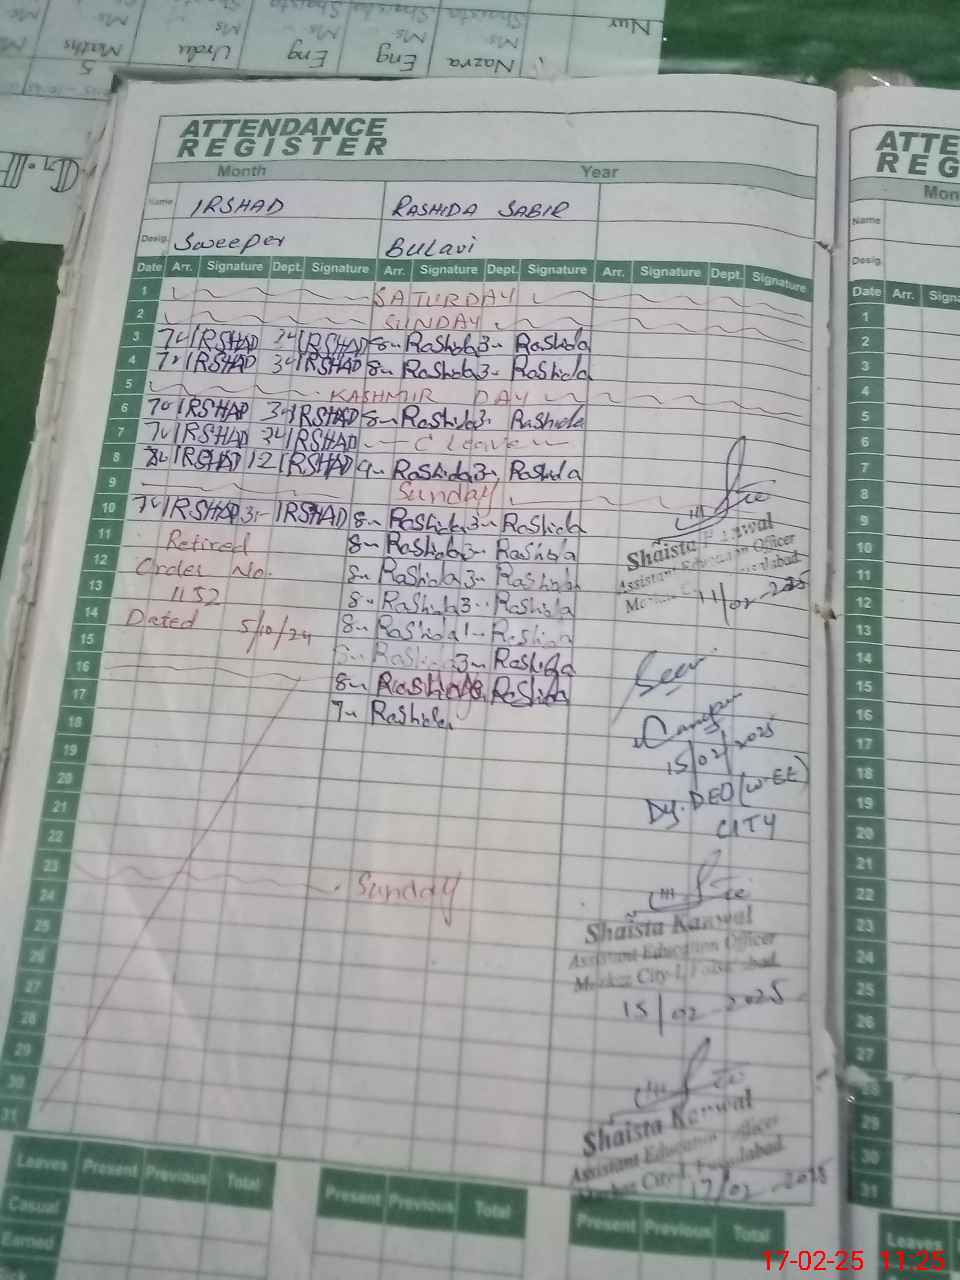 Nur
Nazra
Eng
Eng
Urdu
Maths
5
Ms
Ms
Ms
G.H
ATTENDANCE
REGISTER
Month Year
Name IRSHAD RASHIDA SABIR
Desig. Sweeper BULAVI
Date Arr. Signature Dept. Signature Arr. Signature Dept. Signature Arr. Signature Dept. Signature
1 SATURDAY
2 SUNDAY
3 IRSHAD IRSHAD 8 Rashida 3 Rashida
4 IRSHAD IRSHAD 8 Rashida 3 Rashida
5 KASHMIR DAY
6 IRSHAD IRSHAD 8 Rashida 3 Rashida
7 IRSHAD IRSHAD C Leave
8 IRSHAD 12 IRSHAD 9 Rashida 3 Rashida
9 Sunday
10 IRSHAD 3 IRSHAD 8 Rashida 3 Rashida
11 Retired 8 Rashida 3 Rashida
12 Order No. 8 Rashida 3 Rashida
13 1152 8 Rashida 3 Rashida
14 Dated 5/10/24 8 Rashida 1 Rashida
15 Rashida 3 Rashida
16 8 Rashida Rashida
17 7 Rashida
18
19
20
21
22
23 Sunday
24
25
26
27
28
29
30
31
Shaista Kanwal
Assistant Education Officer
11/02-2025
Seen
15/02/2025
Dy. DEO (W-EE)
CITY
Shaista Kanwal
Assistant Education Officer
Markaz City-I, Faisalabad
15/02-2025
Shaista Kanwal
Assistant Education Officer
Markaz City-I, Faisalabad
17/02-2025
Leaves Present Previous Total Present Previous Total Present Previous Total
Casual
Earned
Sick
ATTE
REG
Mon
Name
Desig.
Date Arr. Signa
1
2
3
4
5
6
7
8
9
10
11
12
13
14
15
16
17
18
19
20
21
22
23
24
25
26
27
28
29
30
31
Leaves
17-02-25 11:25